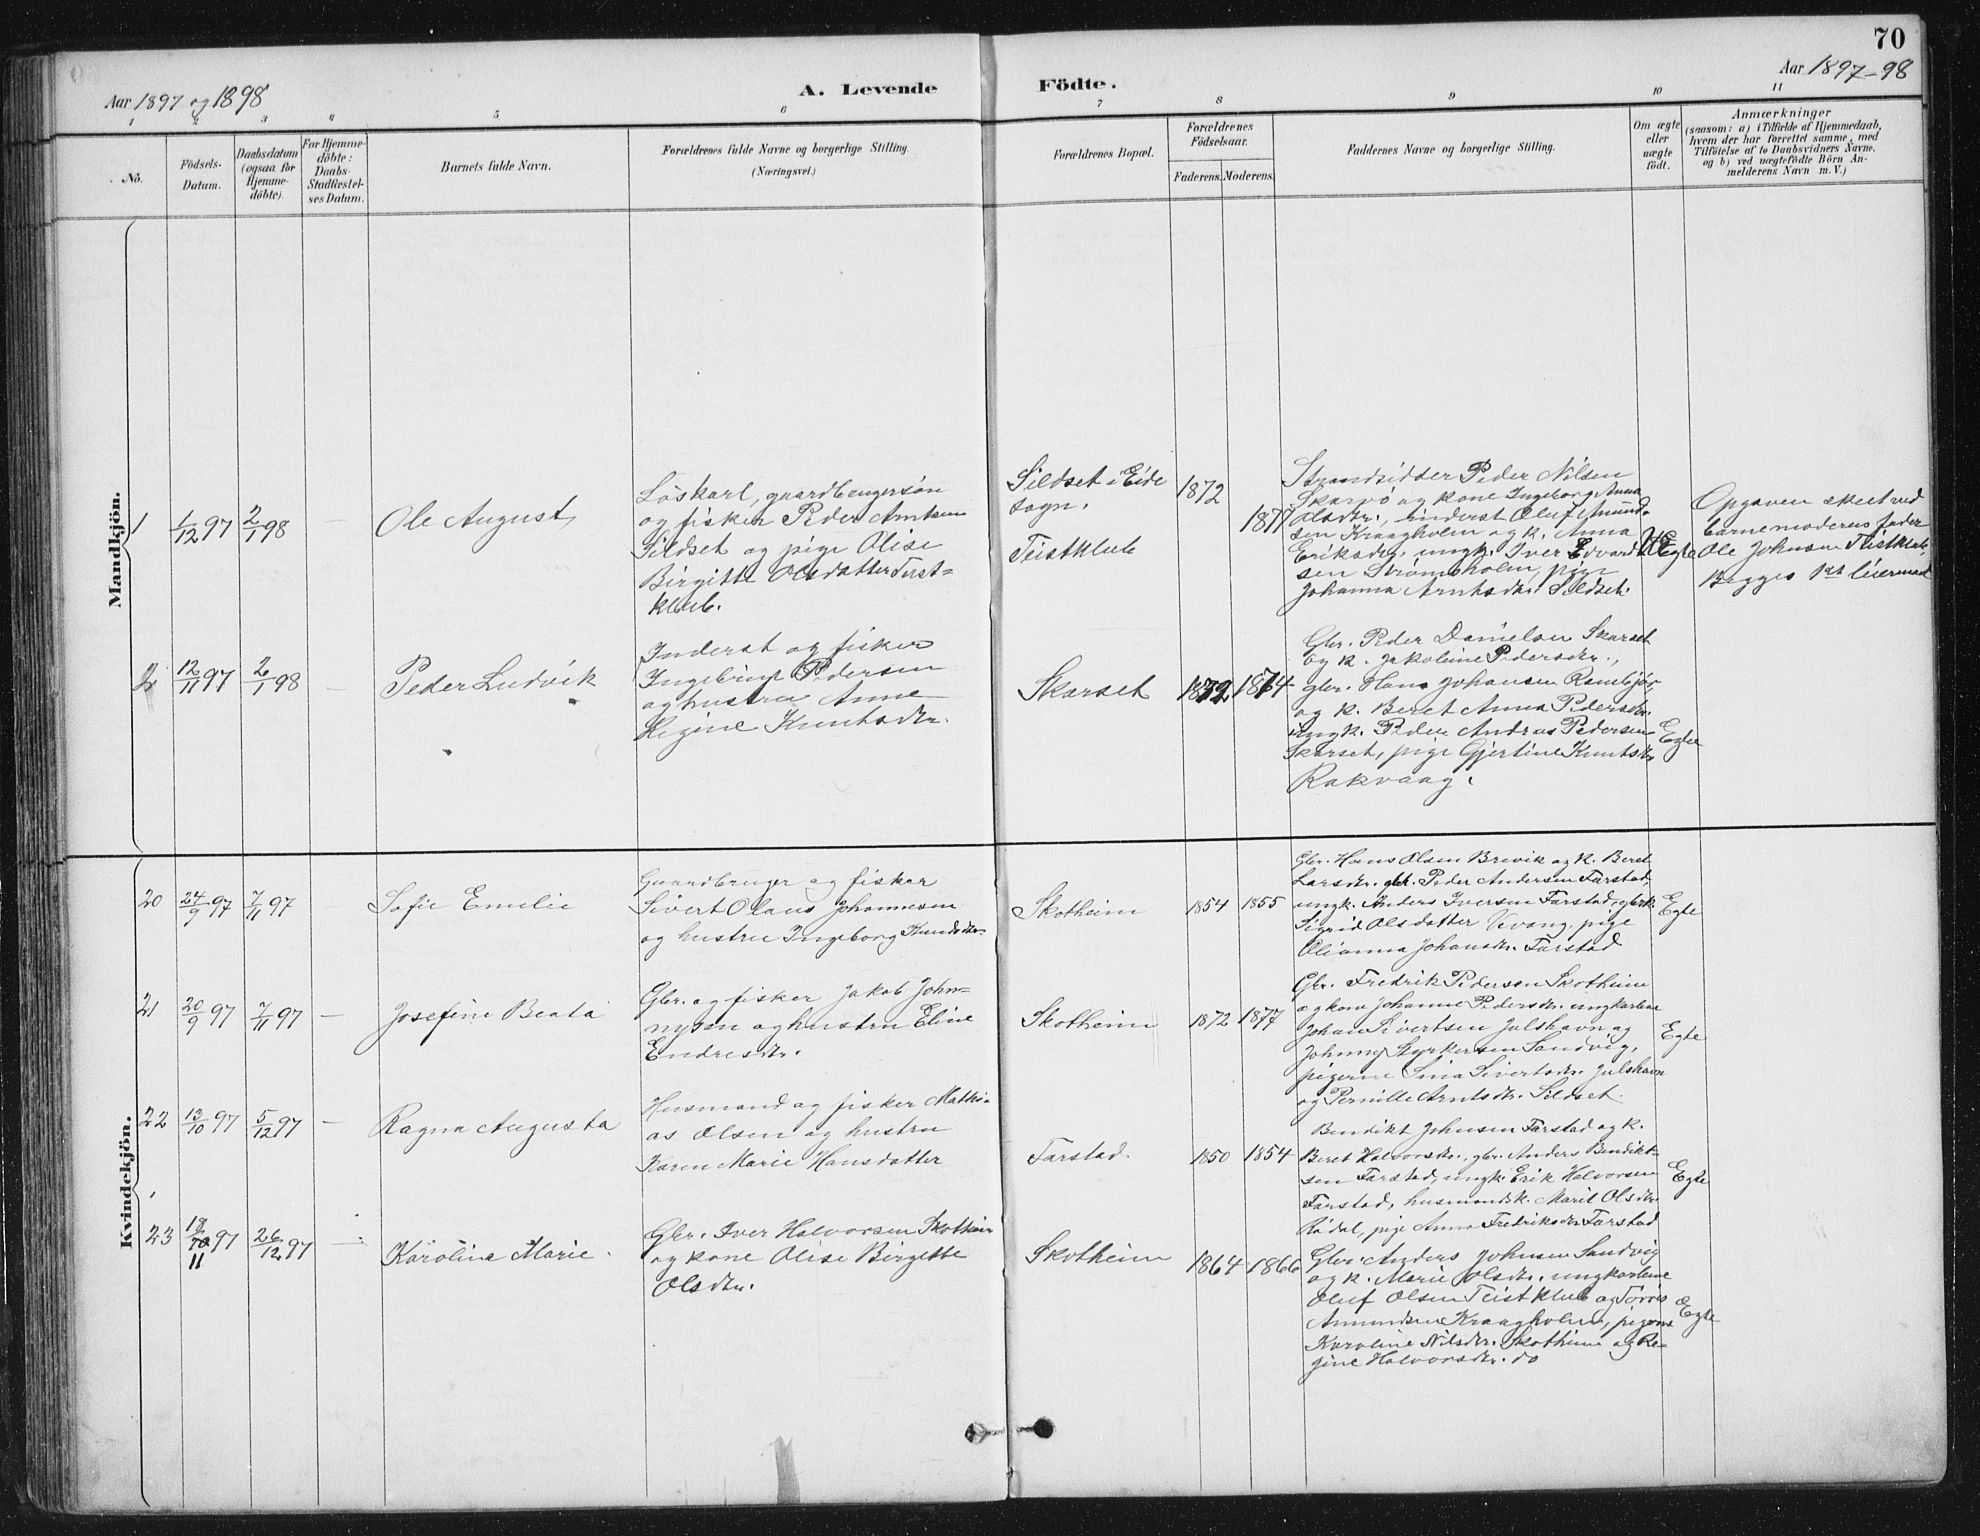 70
Aar 1897 og 1898
A. Levende Födte.
Aar 1897-98
1 2 3 4 5 6 7 8 9 10 11
No.
Födsels-
Datum.
Daabsdatum
(ogsaa for
Hjemme-
döbte).
For Hjemme-
döbte:
Daabs-
Stadfæstel-
ses Datum.
Barnets fulde Navn.
Forældrenes fulde Navne og borgerlige Stilling.
(Næringsvei.)
Forældrenes Bopæl.
Forældrenes
Födselsaar.
Faderens.
Moderens.
Faddernes Navne og borgerlige Stilling.
Om ægte
eller
uægte
födt.
Anmærkninger
(saasom: a) i Tilfælde af Hjemmedaab,
hvem der har forrettet samme, med
Tilföielse af to Daabsvidners Navne.
og b) ved uægtefödte Börn An-
melderens Navn m. V.)
Mandkjön.
1
1/12 97
2/1 98
Ole August
Löskarl, gaardbrugersön
og fisker Peder Arntsen
Sildset og pige Olise
Birgitte Olsdatter Teist-
klub.
Sildset i Eide
sogn.
Teistklub
1872
1877
Strandsidder Peder Nilsen
Skarvö og kone Ingeborg Anna
Olsdtr., inderst Oluf Amund-
sen Kraagholm og k. Anna
Eriksdtr., ungk. Iver Edvard
sen Strømsholm, pige
Johanna Arntsdtr. Sildset.
Uegte
Opgaven skeet ved
barnemoderens fader
Ole Johnsen Teistklub.
Begges 1st leiermaal
2
12/11 97
2/1 98
Peder Ludvik
Inderst og fisker
Ingebrigt Pedersen
og hustru Anne
Regine Knutsdtr.
Skarset
1872
1874
Gbr. Peder Danielsen Skarset
og k. Jakobine Pedersdtr.,
gbr. Hans Johansen
og k. Beret Anna Pedersdtr.
ungk. Peder Andreas Pedersen
Skarset, pige Gjertine Knutsdtr
Rakvaag.
Egte
Kvindekjön.
20
24/9 97
7/11 97
Sofie Emilie
Gaardbruger og fisker
Sivert Olaus Johannesen
og hustru Ingeborg Knudsdtr.
Skotheim
1854
1855
Gbr. Hans Olsen Brevik og k. Beret
Larsdtr. gbr. Peder Andersen Farstad,
ungk. Anders Iversen Farstad, gbrk.
Sigrid Olsdatter, pige
Olianna Johansdtr. Farstad
Egte
21
20/9 97
7/11 97
Josefine Beata
Gbr. og fisker Jakob John-
nysen og hustru Eline
Endresdtr.
Skotheim
1872
1877
Gbr. Fredrik Pedersen Skotheim
og kone Johanne Pedersdtr. ungkarlene
Johan Sivertsen Julshavn og
Johnny Styrkersen Sandvig,
pigerne Sina Sivertsdtr. Julshavn
og Pernille Arntsdtr. Sildset.
Egte
22
13/10 97
5/12 97
Ragna Augusta
Husmand og fisker Mathi-
as Olsen og hustru
Karen Marie Hansdatter
Farstad.
1850
1854
Bendikt Johnsen Farstad og k.
Beret Halvorsdtr., gbr. Anders Bendikt-
sen Farstad, ungk. Erik Halvorsen
Farstad, husmandsk. Marit Olsdtr.
Rødal, pige Anna Fredriksdtr Farstad
Egte
23
18/11 97
26/12 97
Karolina Marie.
Gbr. Iver Halvorsen Skotheim
og kone Olise Birgitte
Olsdtr.
Skotheim
1864
1866
Gbr. Anders Johnsen Sandvig
og k. Marie Olsdtr. ungkarlene
Oluf Olsen Teistklub og Tørris
Amundsen Kraagholm, pigerne
Karoline Nilsdtr. Skotheim og Re-
gine Halvorsdtr. do
Egte